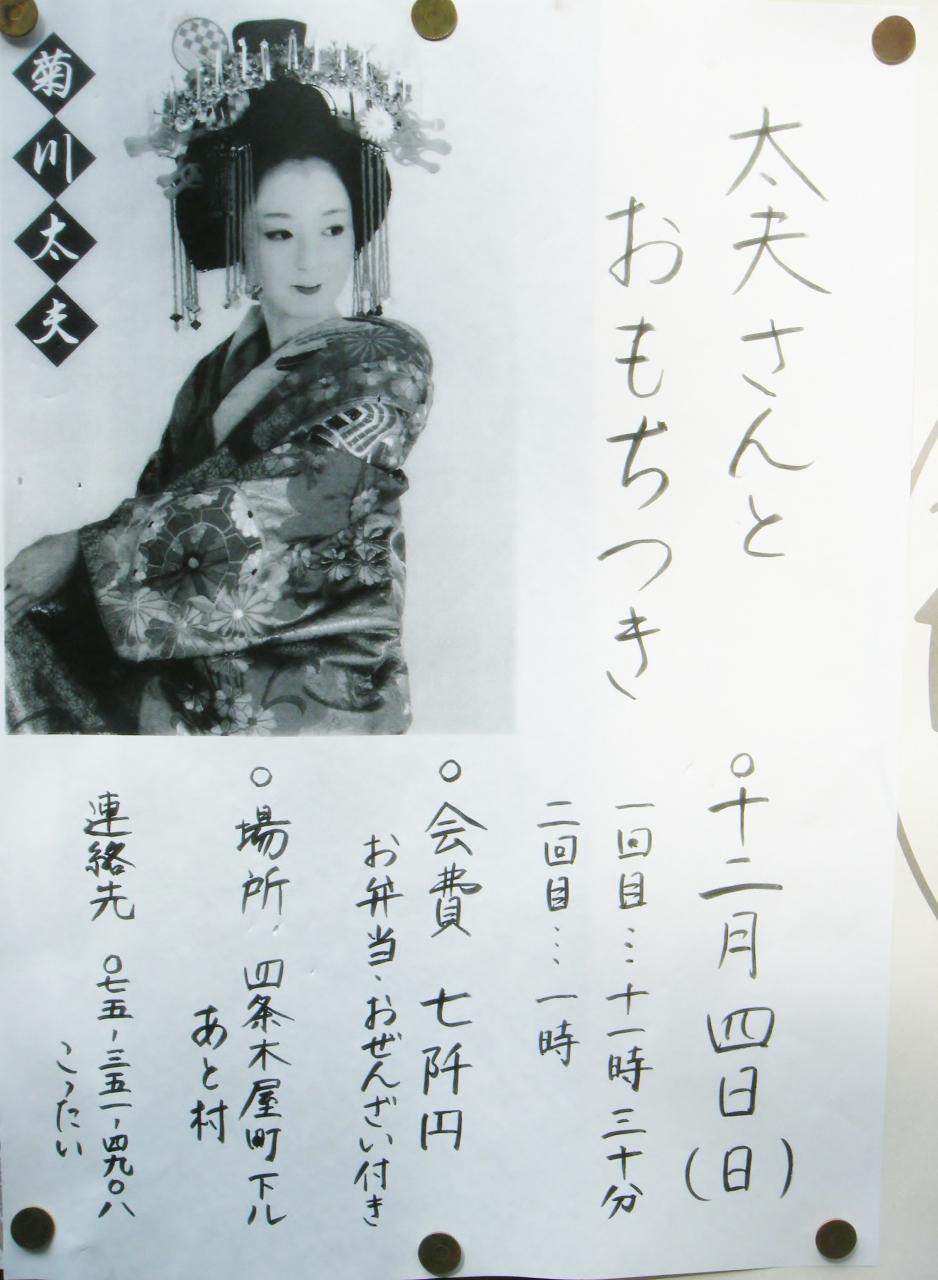 太夫さんと
おもちつき
菊川太夫
○十二月四日(日)
一回目…十一時三十分
二回目…一時
○会費 七阡円
お弁当、おぜんざい付き
○場所、四条木屋町下ル
あと村
連絡先 〇七五-三五一-四九〇八
こったい